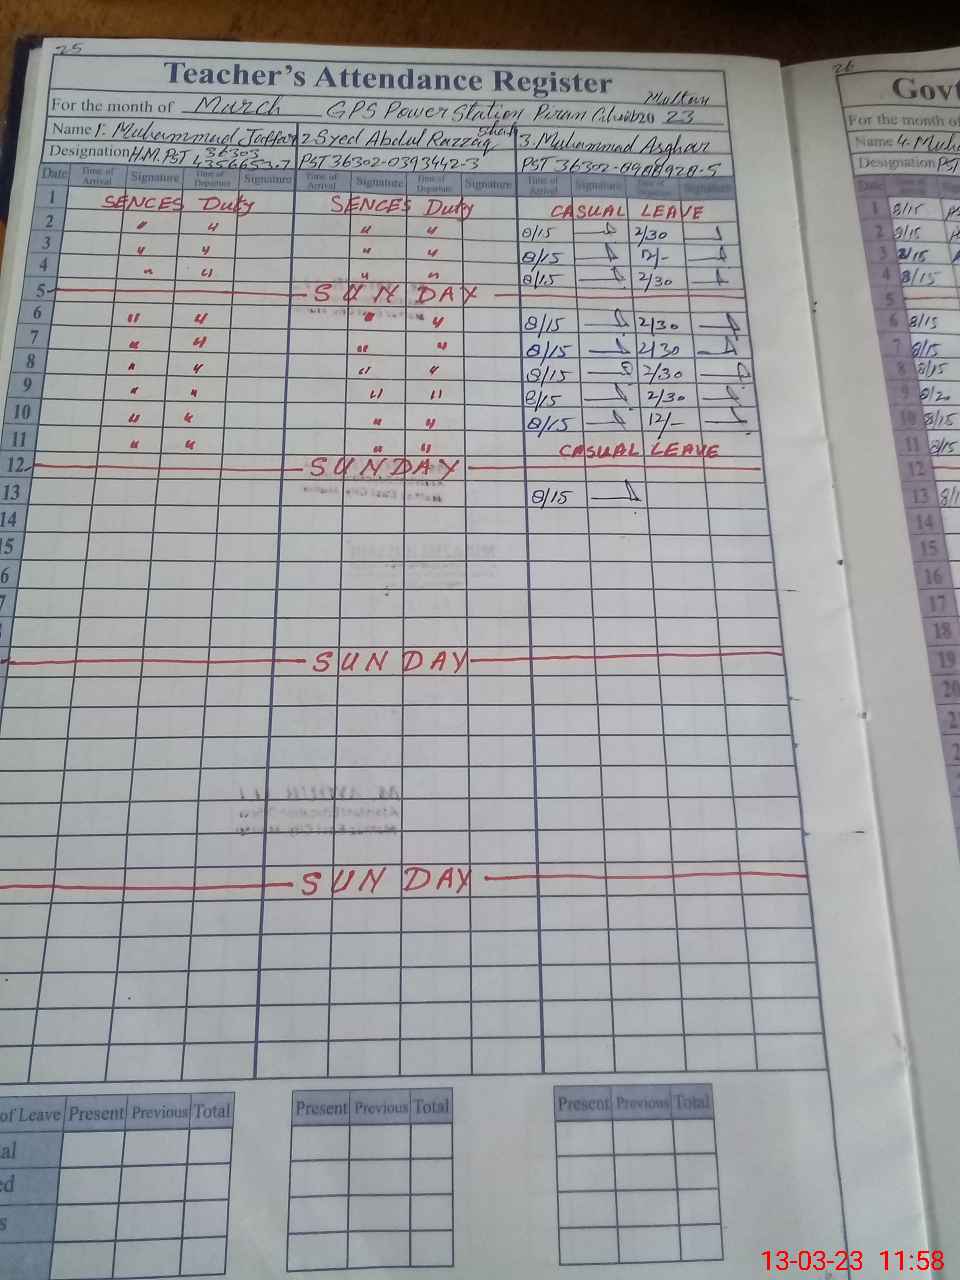 25
Teacher's Attendance Register
For the month of March GPS Power Station Piran 23
Multan
Name 1. Muhammad Jaffar 2 Syed Abdul Razzaq Shah 3. Muhammad Asghar
Designation H.M. PST 36303 PST 36302-0393442-3 PST 36302
4356653-7
Date Time of Arrival Signature Time of Departure Signature Time of Arrival Signature Time of Departure Signature Time of Arrival Signature Time of Departure Signature
1 SENCES Duty SENCES Duty CASUAL LEAVE
2 " " " " 8/15 2/30
3 " " " " 8/15 12/-
4 " " " " 8/15 2/30
5 SUNDAY
6 " " " " 8/15 2/30
7 " " " " 8/15 2/30
8 " " " " 8/15 2/30
9 " " " " 8/15 2/30
10 " " " " 8/15 12/-
11 " " " " CASUAL LEAVE
12 SUNDAY
13 8/15
14
15
6
7
SUNDAY
SUNDAY
of Leave Present Previous Total Present Previous Total Present Previous Total
al
ed
s
26
Govt
For the month of
Name 4. Muha
Designation PST
Date
1 8/15
2 8/15
3 8/15
4 8/15
5
6 8/15
7 8/15
8 8/15
9 8/20
10 8/15
11 8/15
12
13 8/1
14
15
16
17
18
19
20
13-03-23 11:58